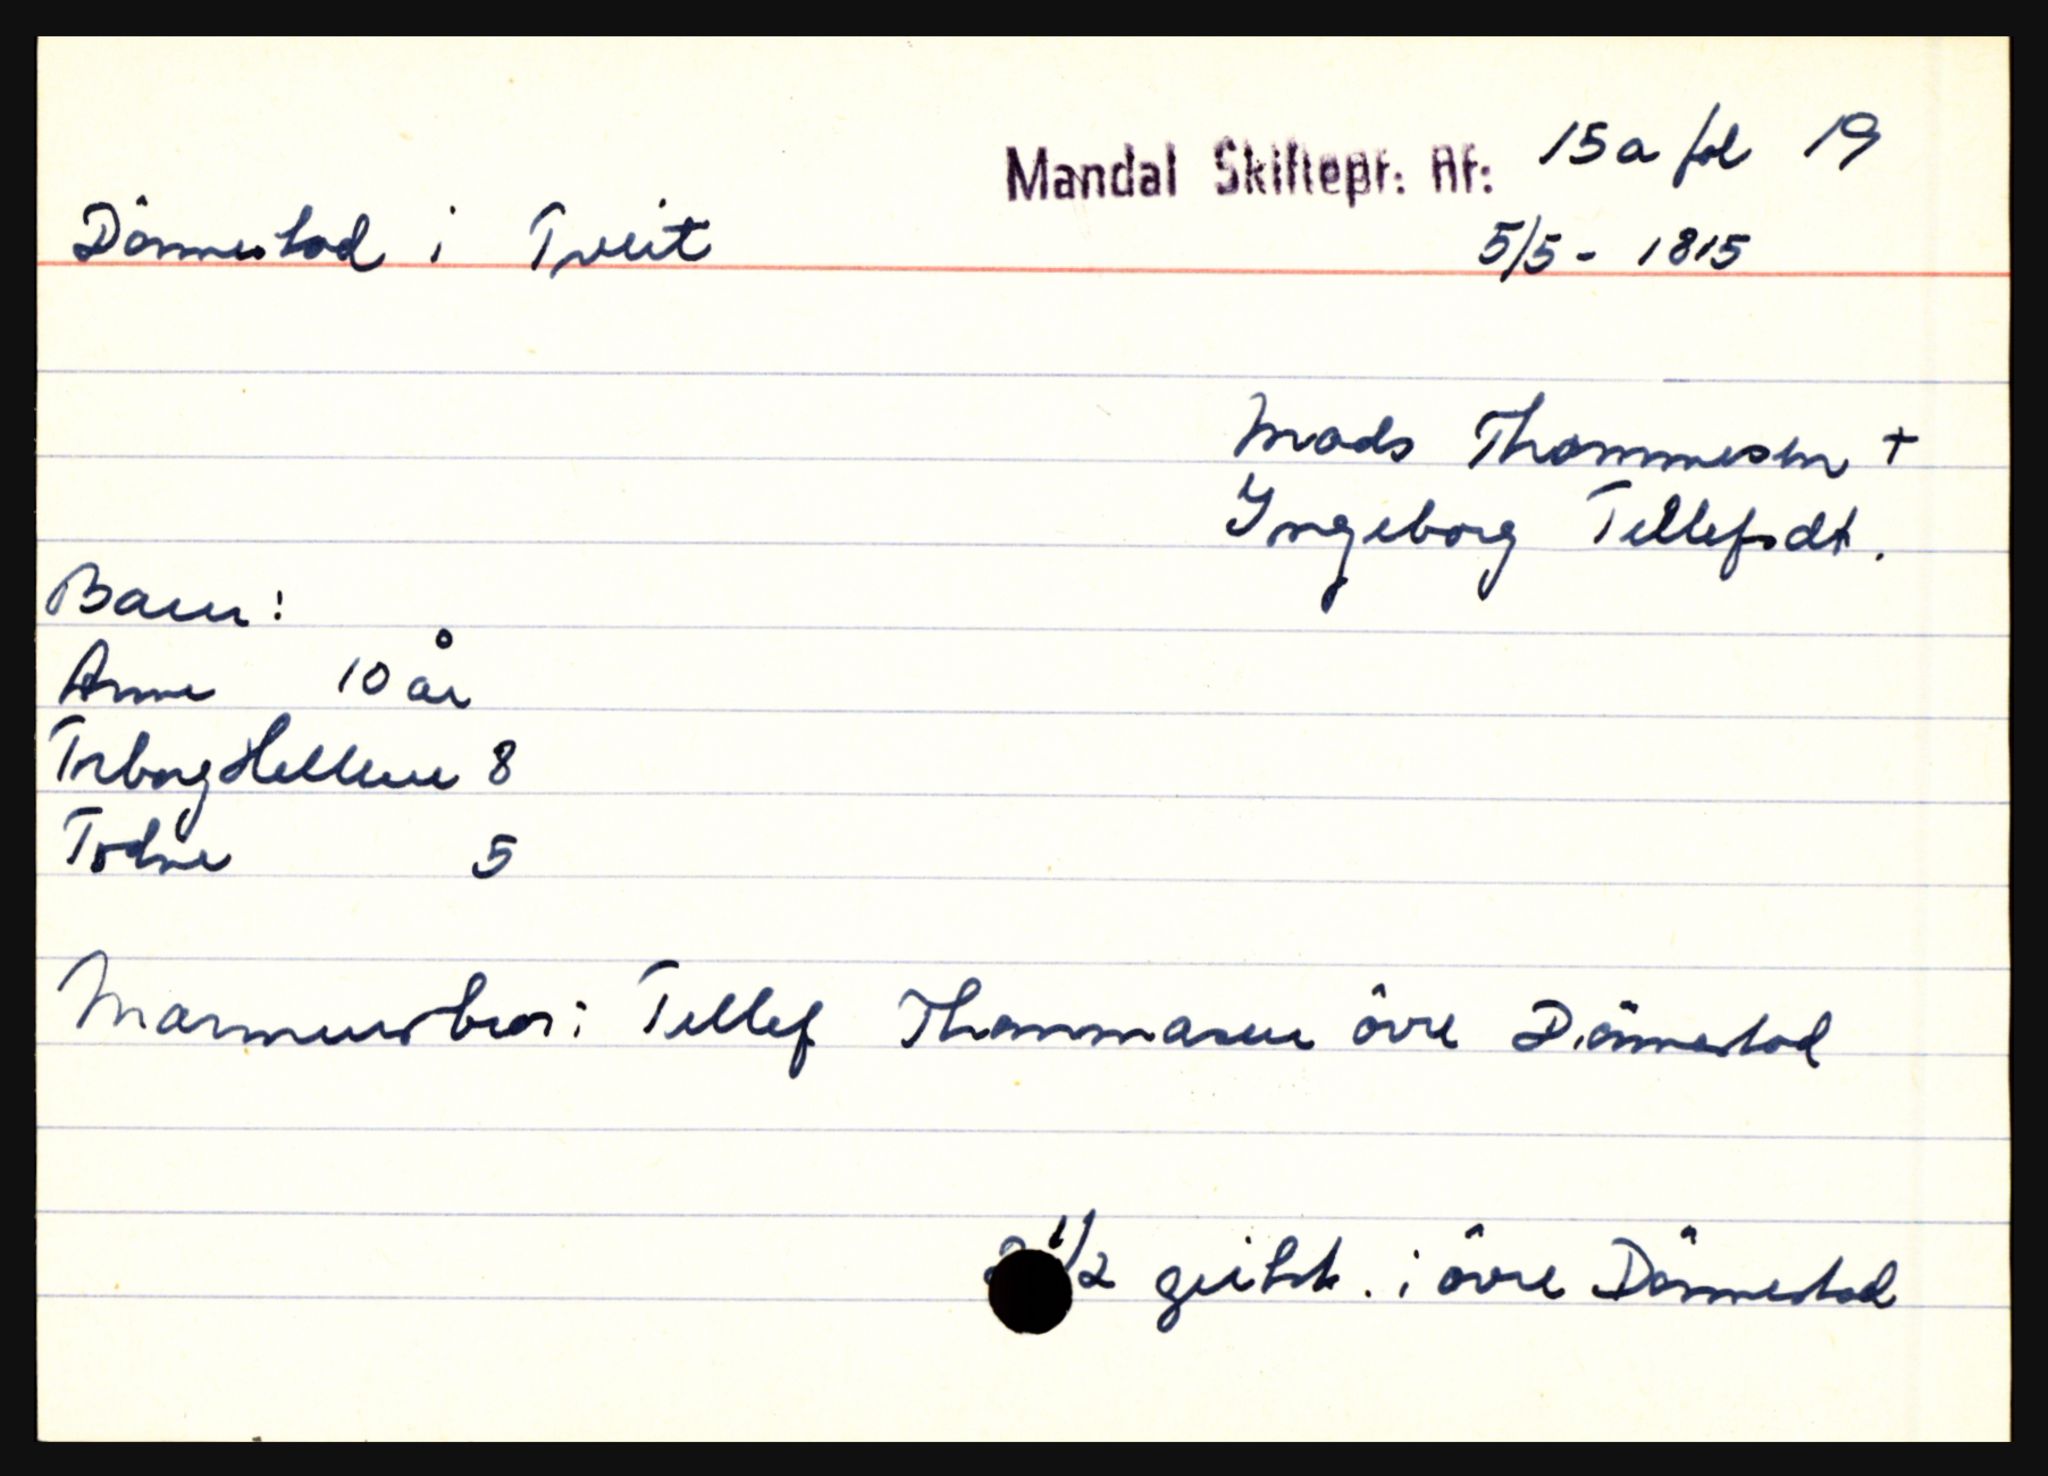 Mandal Skiftepr. nr: 15a fol 19
Dônnestad i Tveit 5/5 - 1815
Mads Thommesen +
Yngeborg Tellefsdt.
Barn:
Anne 10 år
Torborg Hellene 8
Todne 5
Mannens bror: Tellef Thommasen ôvre Dônnestad
2 1/2 geitsk. i ôvre Dônnestad